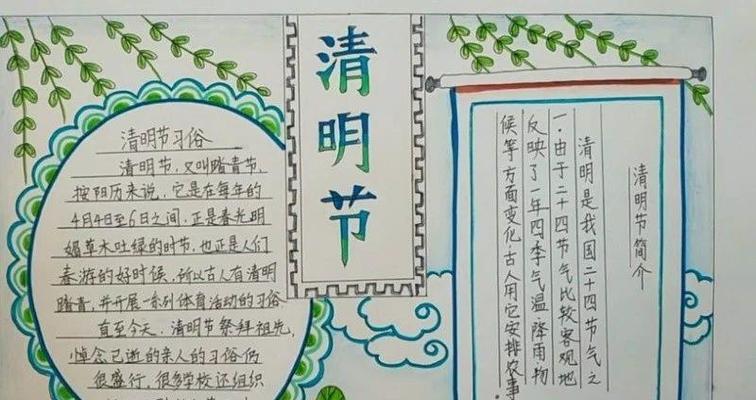 清明节
清明节习俗
清明节，又叫踏青节，
按阳历来说，它是在每年的
4月4日至6日之间，正是春光明
媚草木吐绿的时节，也正是人们
春游的好时候，所以古人有清明
踏青，并开展一系列体育活动的习俗
直至今天，清明节祭拜祖先，
悼念已逝的亲人的习俗仍
很盛行，很多学校还组织
清明节简介
清明是我国二十四节气之
一。由于二十四节气比较客观地
反映了一年四季气温、降雨、物
候等方面变化，古人用它安排农事